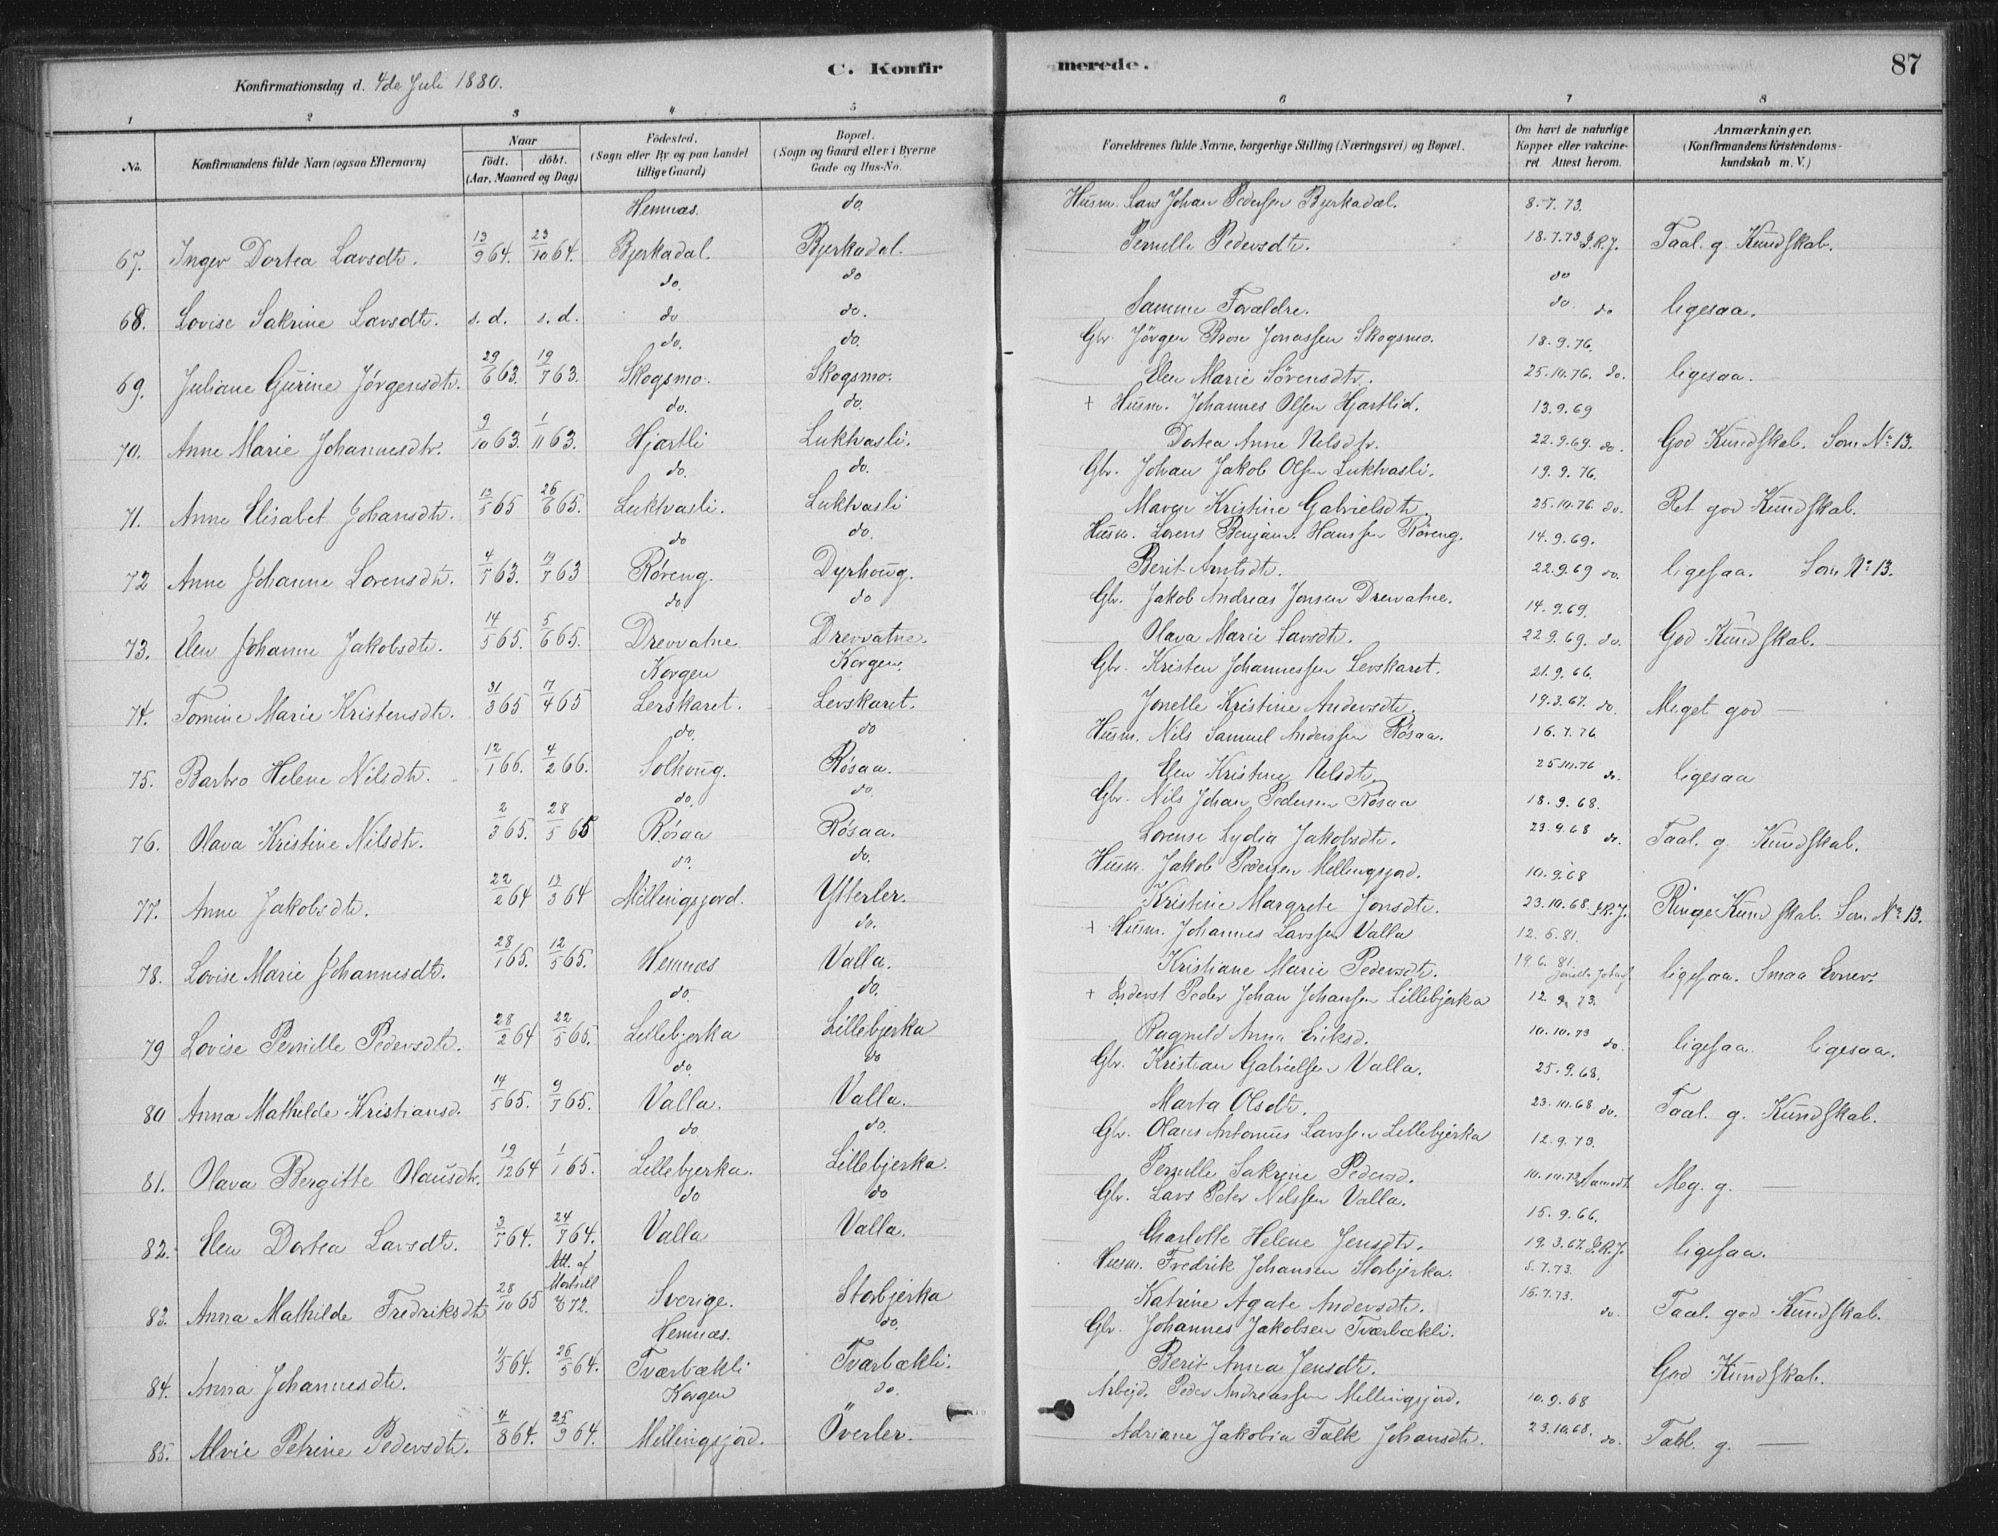 Konfirmationsdag d. 4de Juli 1880.
C. Konfirmerede.
87
1 2 3 4 5 6 7 8
No. Konfirmandens fulde Navn (ogsaa Efternavn) Naar födt. döbt. (Aar, Maaned og Dag) Födested. (Sogn eller By og paa Landet tillige Gaard) Bopæl. (Sogn og Gaard eller i Byerne Gade og Hus-No. Forældrenes fulde Navne, borgerlige Stilling (Næringsvei) og Bopæl. Om havt de naturlige Kopper eller vakcineret. Attest herom. Anmærkninger. (Konfirmandens Kristendomskundskab m. V.)
Hemnæs. do. Husm. Lars Johan Pedersen Bjerkadal. 8.7.73.
67. Inger Dortea Larsdtr. 13/9 64. 23/10 64. Bjerkadal. Bjerkadal. Pernille Pedersdtr. 18.7.73 J.R.J. Taal. g. Kundskab.
do. do do
68. Lovise Sakrine Larsdtr. s. d. s. d. do do. Samme Forældre. do. do ligesaa.
do. do. Gbr. Jørgen Jonassen Skogsmo. 18.9.76.
69. Juliane Gurine Jørgensdtr. 29/6 63. 19/7 63. Skogsmo. Skogsmo. Elen Marie Sørensdtr. 25.10.76. do. ligesaa.
do. do. + Husm. Johannes Olsen Hjartlid. 13.9.69
70. Anne Marie Johannesdtr. 9/10 63. 1/11 63. Hjartli Luktvasli. Dortea Anne Nilsdtr. 22.9.69. do. God Kundskab. Som No 13.
do. do. Gbr. Johan Jakob Olsen Luktvasli. 19.9.76.
71. Anne Elisabet Johansdtr. 13/5 65 26/6 65. Luktvasli. Luktvasli Maren Kristine Gabrielsdtr. 25.10.76. do. Ret god Kundskab.
do do. Husm. Lorens Benjam. Hanssen Røreng. 14.9.69.
72 Anne Johanne Lorensdtr. 4/7 63. 19/7 63 Røreng. Dyrhoug. Berit Arntsdtr. 22.9.69 do. ligesaa. Som No 13.
do do Gbr. Jakob Andreas Jonsen Drevvatne. 14.9.69.
73. Elen Johanne Jakobsdtr. 14/5 65. 5/6 65. Drevvatne Drevvatne. Olava Marie Larsdtr. 22.9.69. do. God Kundskab.
Korgen Korgen. Gbr. Kristen Johannessen Lerskaret. 21.9.66.
74. Tomine Marie Kristensdtr. 31/3 65 17/4 65 Lerskaret. Lerskaret. Jonelle Kristine Andersdtr. 19.3.67. do. Meget god —
do. do Husm. Nils Samuel Anderssen Røsaa. 16.7.76
75. Barbro Helene Nilsdtr. 12/1 66. 4/2 66. Solhoug. Røsaa. Elen Kristine Nilsdtr. 25.10.76 do. ligesaa
do. do. Gbr. Nils Johan Pedersen Røsaa 18.9.68.
76. Olava Kristine Nilsdtr. 2/3 65. 28/5 65 Røsaa Røsaa. Lorense Lydia Jakobsdtr. 23.9.68 do. Taal. g. Kundskab.
do. do. Husm. Jakob Pedersen Mellingsjord. 10.9.68
77. Anne Jakobsdtr. 22/2 64 13/3 64 Mellingsjord. Ytterler. Kristine Margrete Jonsdtr. 23.10.68. J.R.J. Ringe Kundskab. Som No 13.
do. + Husm. Johannes Larssen Valla 12.6.81.
78. Lovise Marie Johannesdtr. 28/1 65. 12/5 65. Hemnæs Valla. Kristiane Marie Pedersdtr. 19.6.81. ligesaa. Smaa Evner.
do. do. + Inderst Peder Johan Johansen Lillebjerka 12.9.73.
79 Lovise Pernille Pedersdtr. 28/2 64 22/5 65. Lillebjerka Lillebjerka Ragnild Anna Eriksd. 10.10.73 do. ligesaa. ligesaa.
do. do Gbr. Kristian Gabrielsen Valla. 25.9.68.
80 Anna Mathilde Kristiansd. 14/5 65. 9/7 65. Valla. Valla. Marta Olsdtr. 23.10.68. do. Taal. g. Kundskab.
do. do. Gbr. Olaus Antonius Larssen Lillebjerka 12.9.73.
81. Olava Bergitte Olausdtr. 19/12 64 1/1 65. Lillebjerka. Lillebjerka. Pernille Sakrine Pedersd. 10.10.73 Meg. g. —
do do Gbr. Lars Peter Nilssen Valla. 15.9.66.
82. Elen Dortea Larsdtr. 3/7 64. 24/7 64. Valla Valla. Charlotte Helene Jensdtr. 19.3.67. J.R.J. ligesaa.
Att. af Husm. Fredrik Johansen Storbjerka. 8.7.73.
83. Anna Mathilde Fredriksdtr 28/10 65 72. Sverige. Storbjerka Katrine Agate Andersdtr. 16.7.73. do. Taal. god Kundskab.
Hemnæs. do. Gbr. Johannes Jakobsen Tværbækli.
84. Anna Johannesdtr. 1/5 64. 26/5 64. Tværbækli Tværbækli. Berit Anna Jensdtr. God Kundskab.
Korgen do. Arbejd. Peder Andreassen Mellingsjord. 10.9.68
85. Alvie Petrine Pedersdtr. 4/8 64. 25/9 64. Mellingsjord. Överler. Adriane Jakobia Falk Johansdtr. 23.10.68. do. Taal. g. —